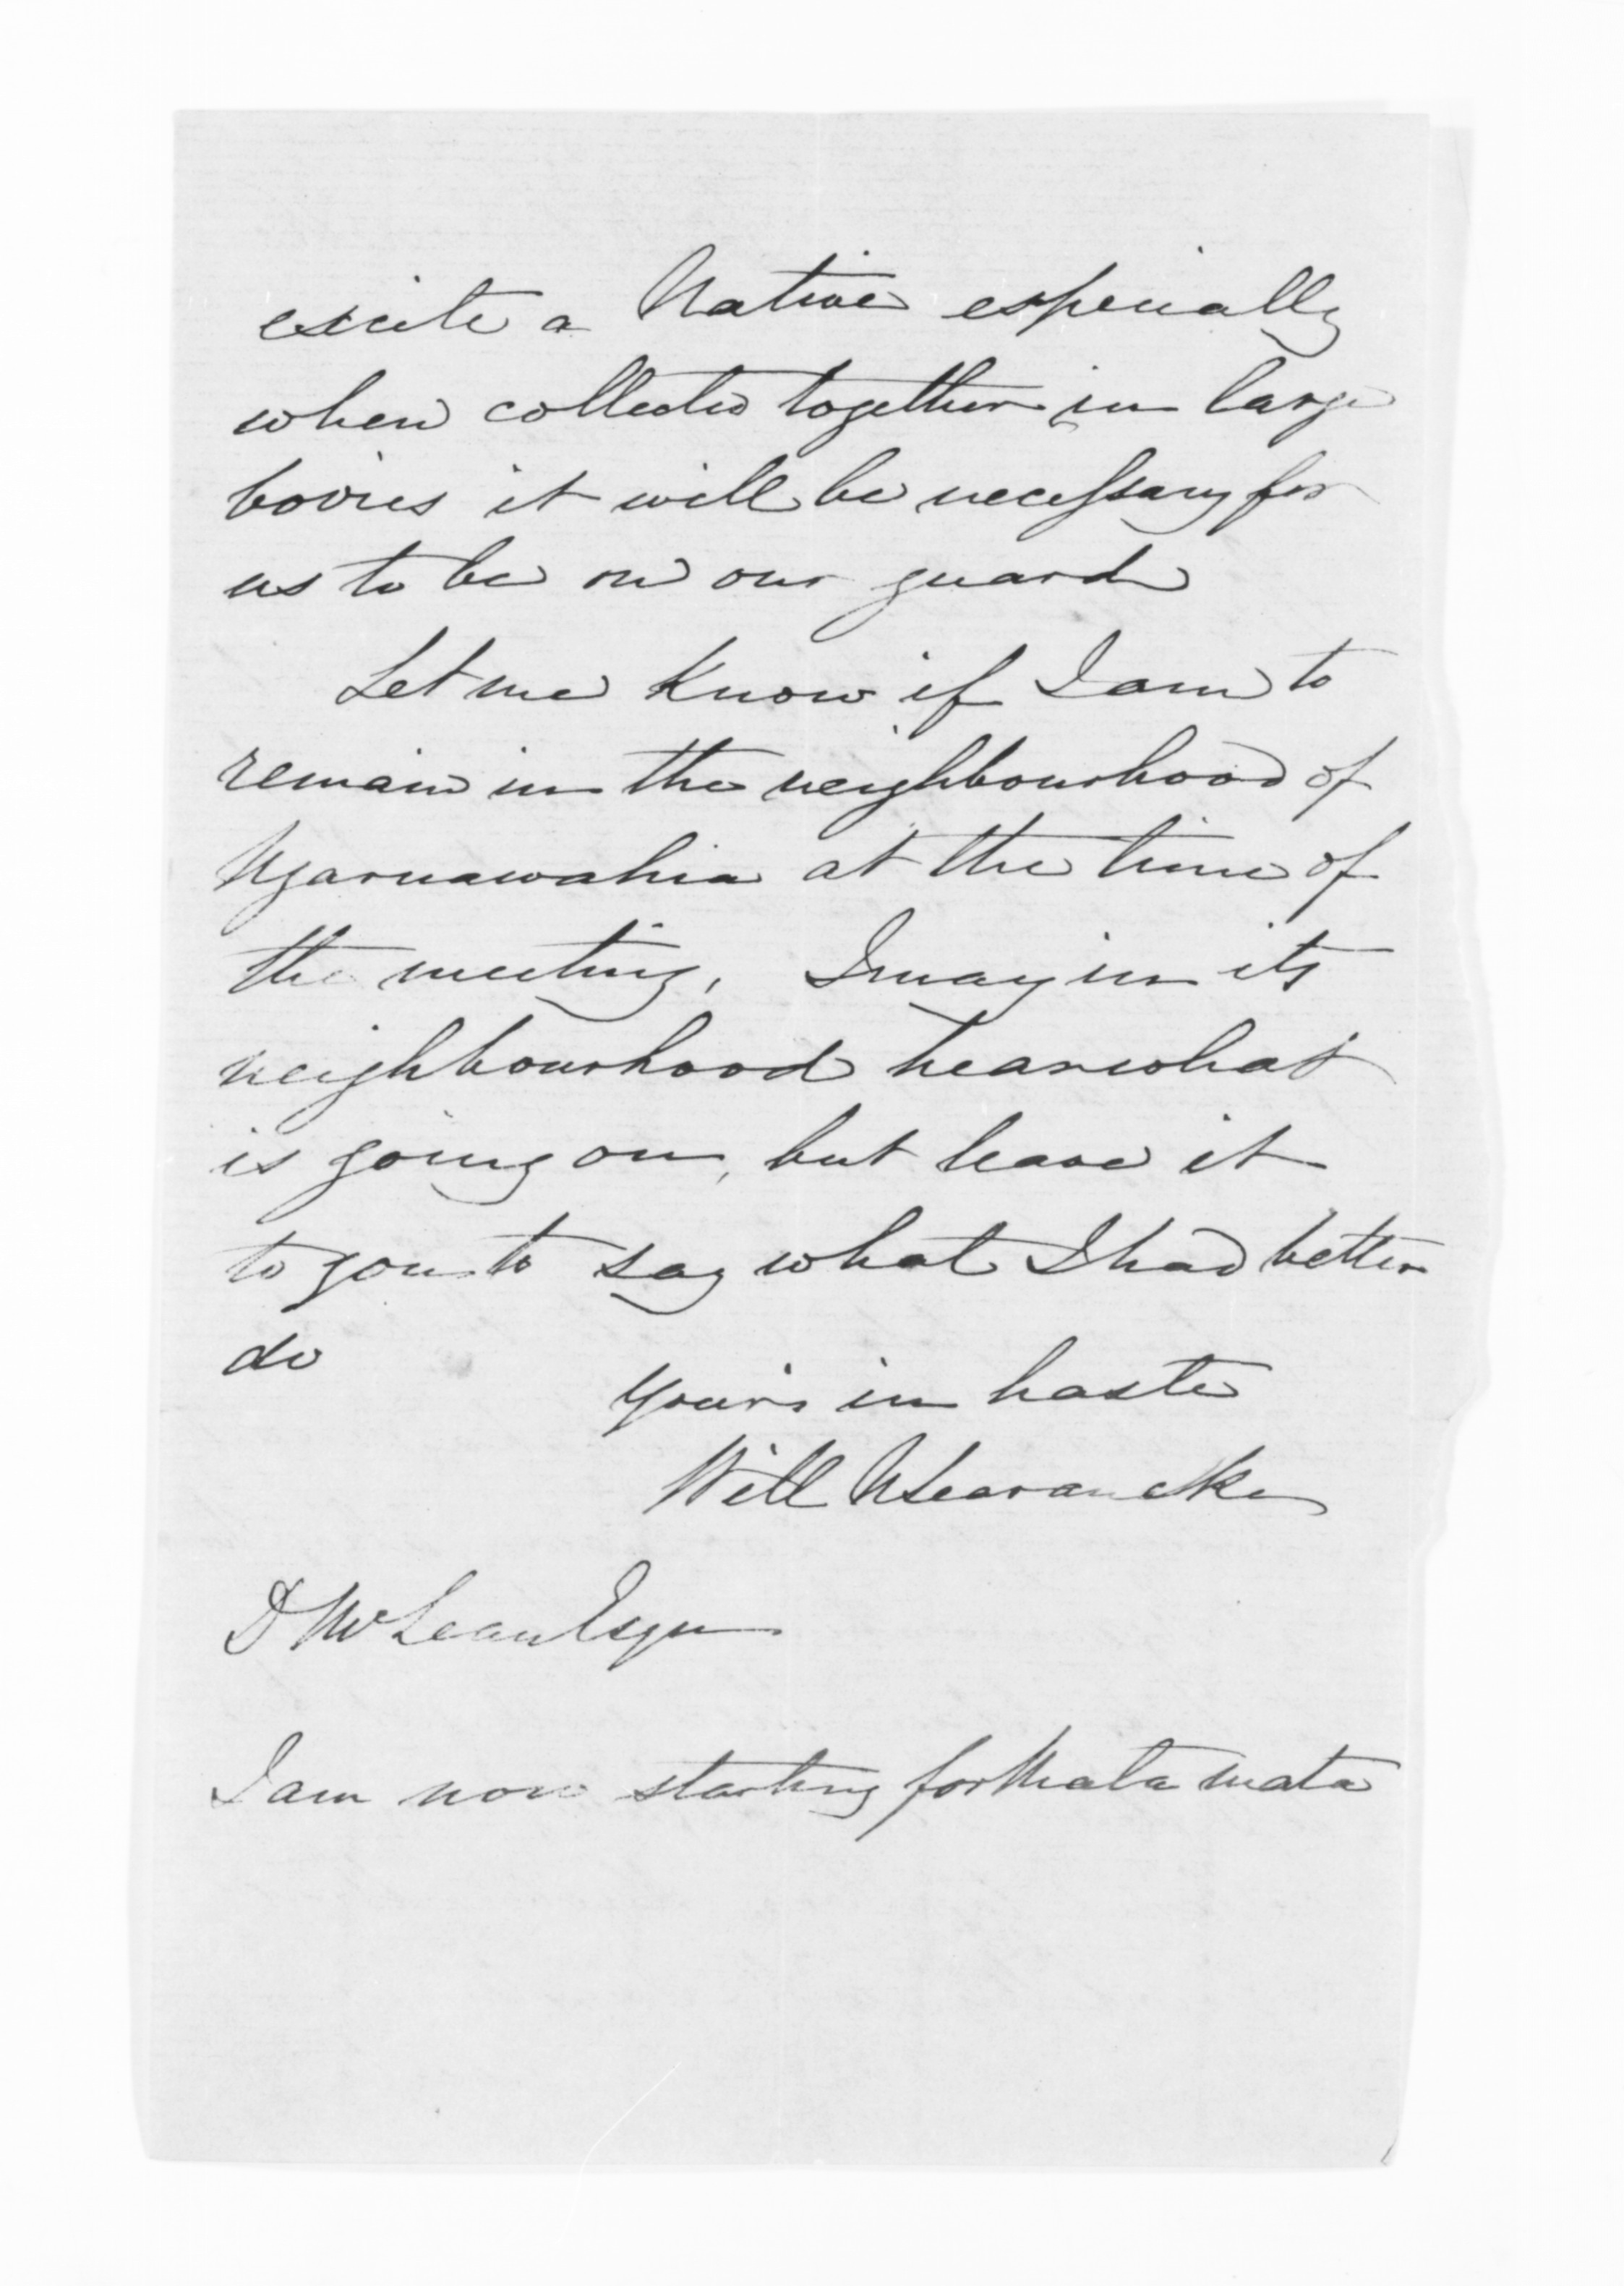 excite a Native especially
when collected together in large
bodies it will be necessary for
us to be on our guard
Let me know if I am to
remain in the neighbourhood of
Ngaruawahia at the time of
the meeting, I may in its
neighbourhood hear what
is going on, but leave it
to you to say what I had better
do
Yours in haste
Will N Searancke
D McLean Esqr
I am now starting for Mata mata